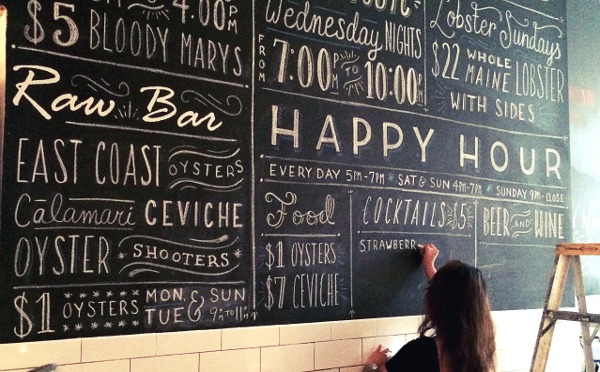 4:00PM
$5 BLOODY MARYS
Raw Bar
EAST COAST OYSTERS
Calamari CEVICHE
OYSTER SHOOTERS
$1 OYSTERS MON, TUE & SUN
Wednesday NIGHTS
FROM 7:00PM TO 10:00PM
Lobster Sundays
$22 WHOLE MAINE LOBSTER
WITH SIDES
HAPPY HOUR
EVERY DAY 5PM-7PM SAT & SUN 4PM-7PM SUNDAY 9PM-CLOSE
Food
$1 OYSTERS
$7 CEVICHE
COCKTAILS $5
STRAWBERR
BEER AND WINE